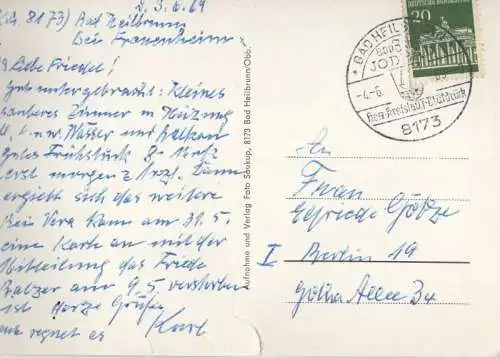 8173) Bad Heilbrunn
D. 3.6.69
bei Frauenheim
Liebe Friedel!
Gut untergebracht: Kleines
sauberes Zimmer m Heizung
u. k. u. w. Wasser und Balkon
gutes Frühstück 8,- Muß
erst morgen z Arzt. Dann
ergiebt sich das weitere
Bei Vera kam am 31.5.
eine Karte an mit der
Mitteilung das Friede
Balzer am 9.5 verstorben
ist Herzl Grüße
regnet es Karl
Aufnahme und Verlag Foto Soukup, 8173 Bad Heilbrunn/Obb.
DEUTSCHE BUNDESPOST
20
BAD HEIL
JOD
-4.-6.
Herz-Kreislauf-Blutdruck
8173
An
Frau
Elfriede Götze
I Berlin 19
Gotha Allee 34